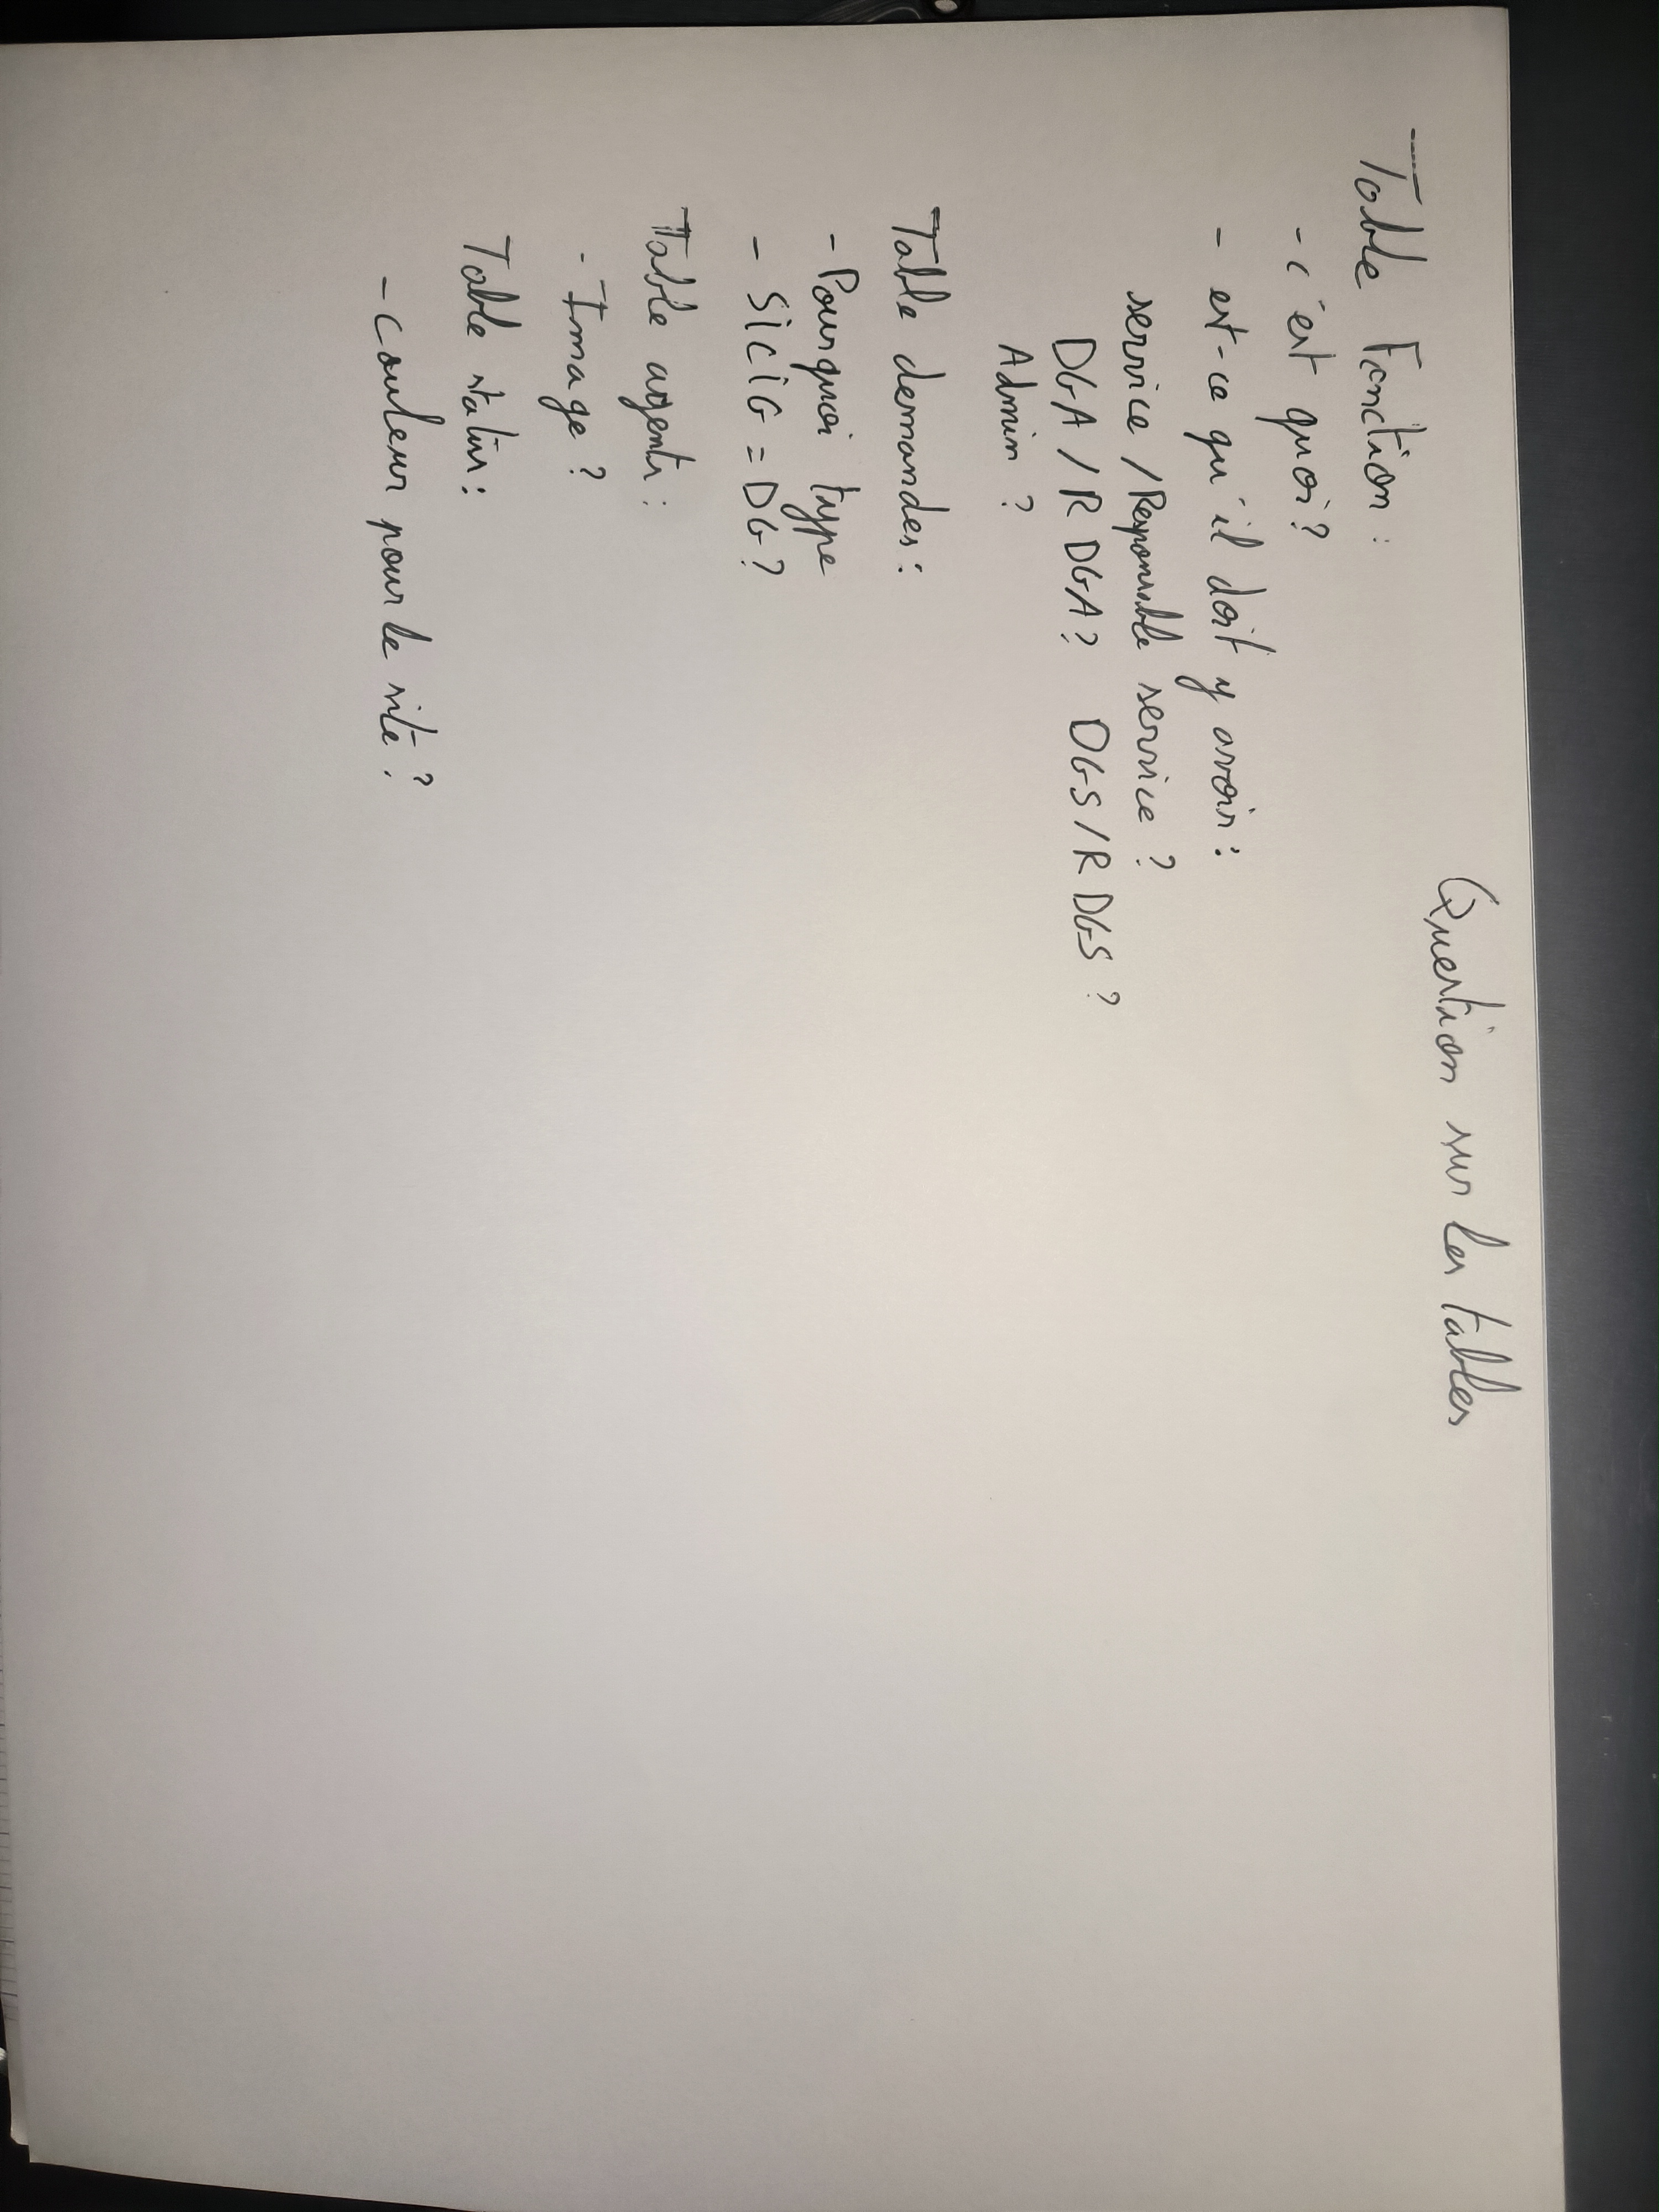 Question sur les tables
Table Fonction :
- c'est quoi ?
- est-ce qu'il doit y avoir :
service / Responsable service ?
DGA / R DGA ? DGS / R DGS ?
Admin ?
Table demandes :
- Pourquoi type
- SiCiG = DG ?
Table agents :
- Image ?
Table status :
- couleur pour le site ?